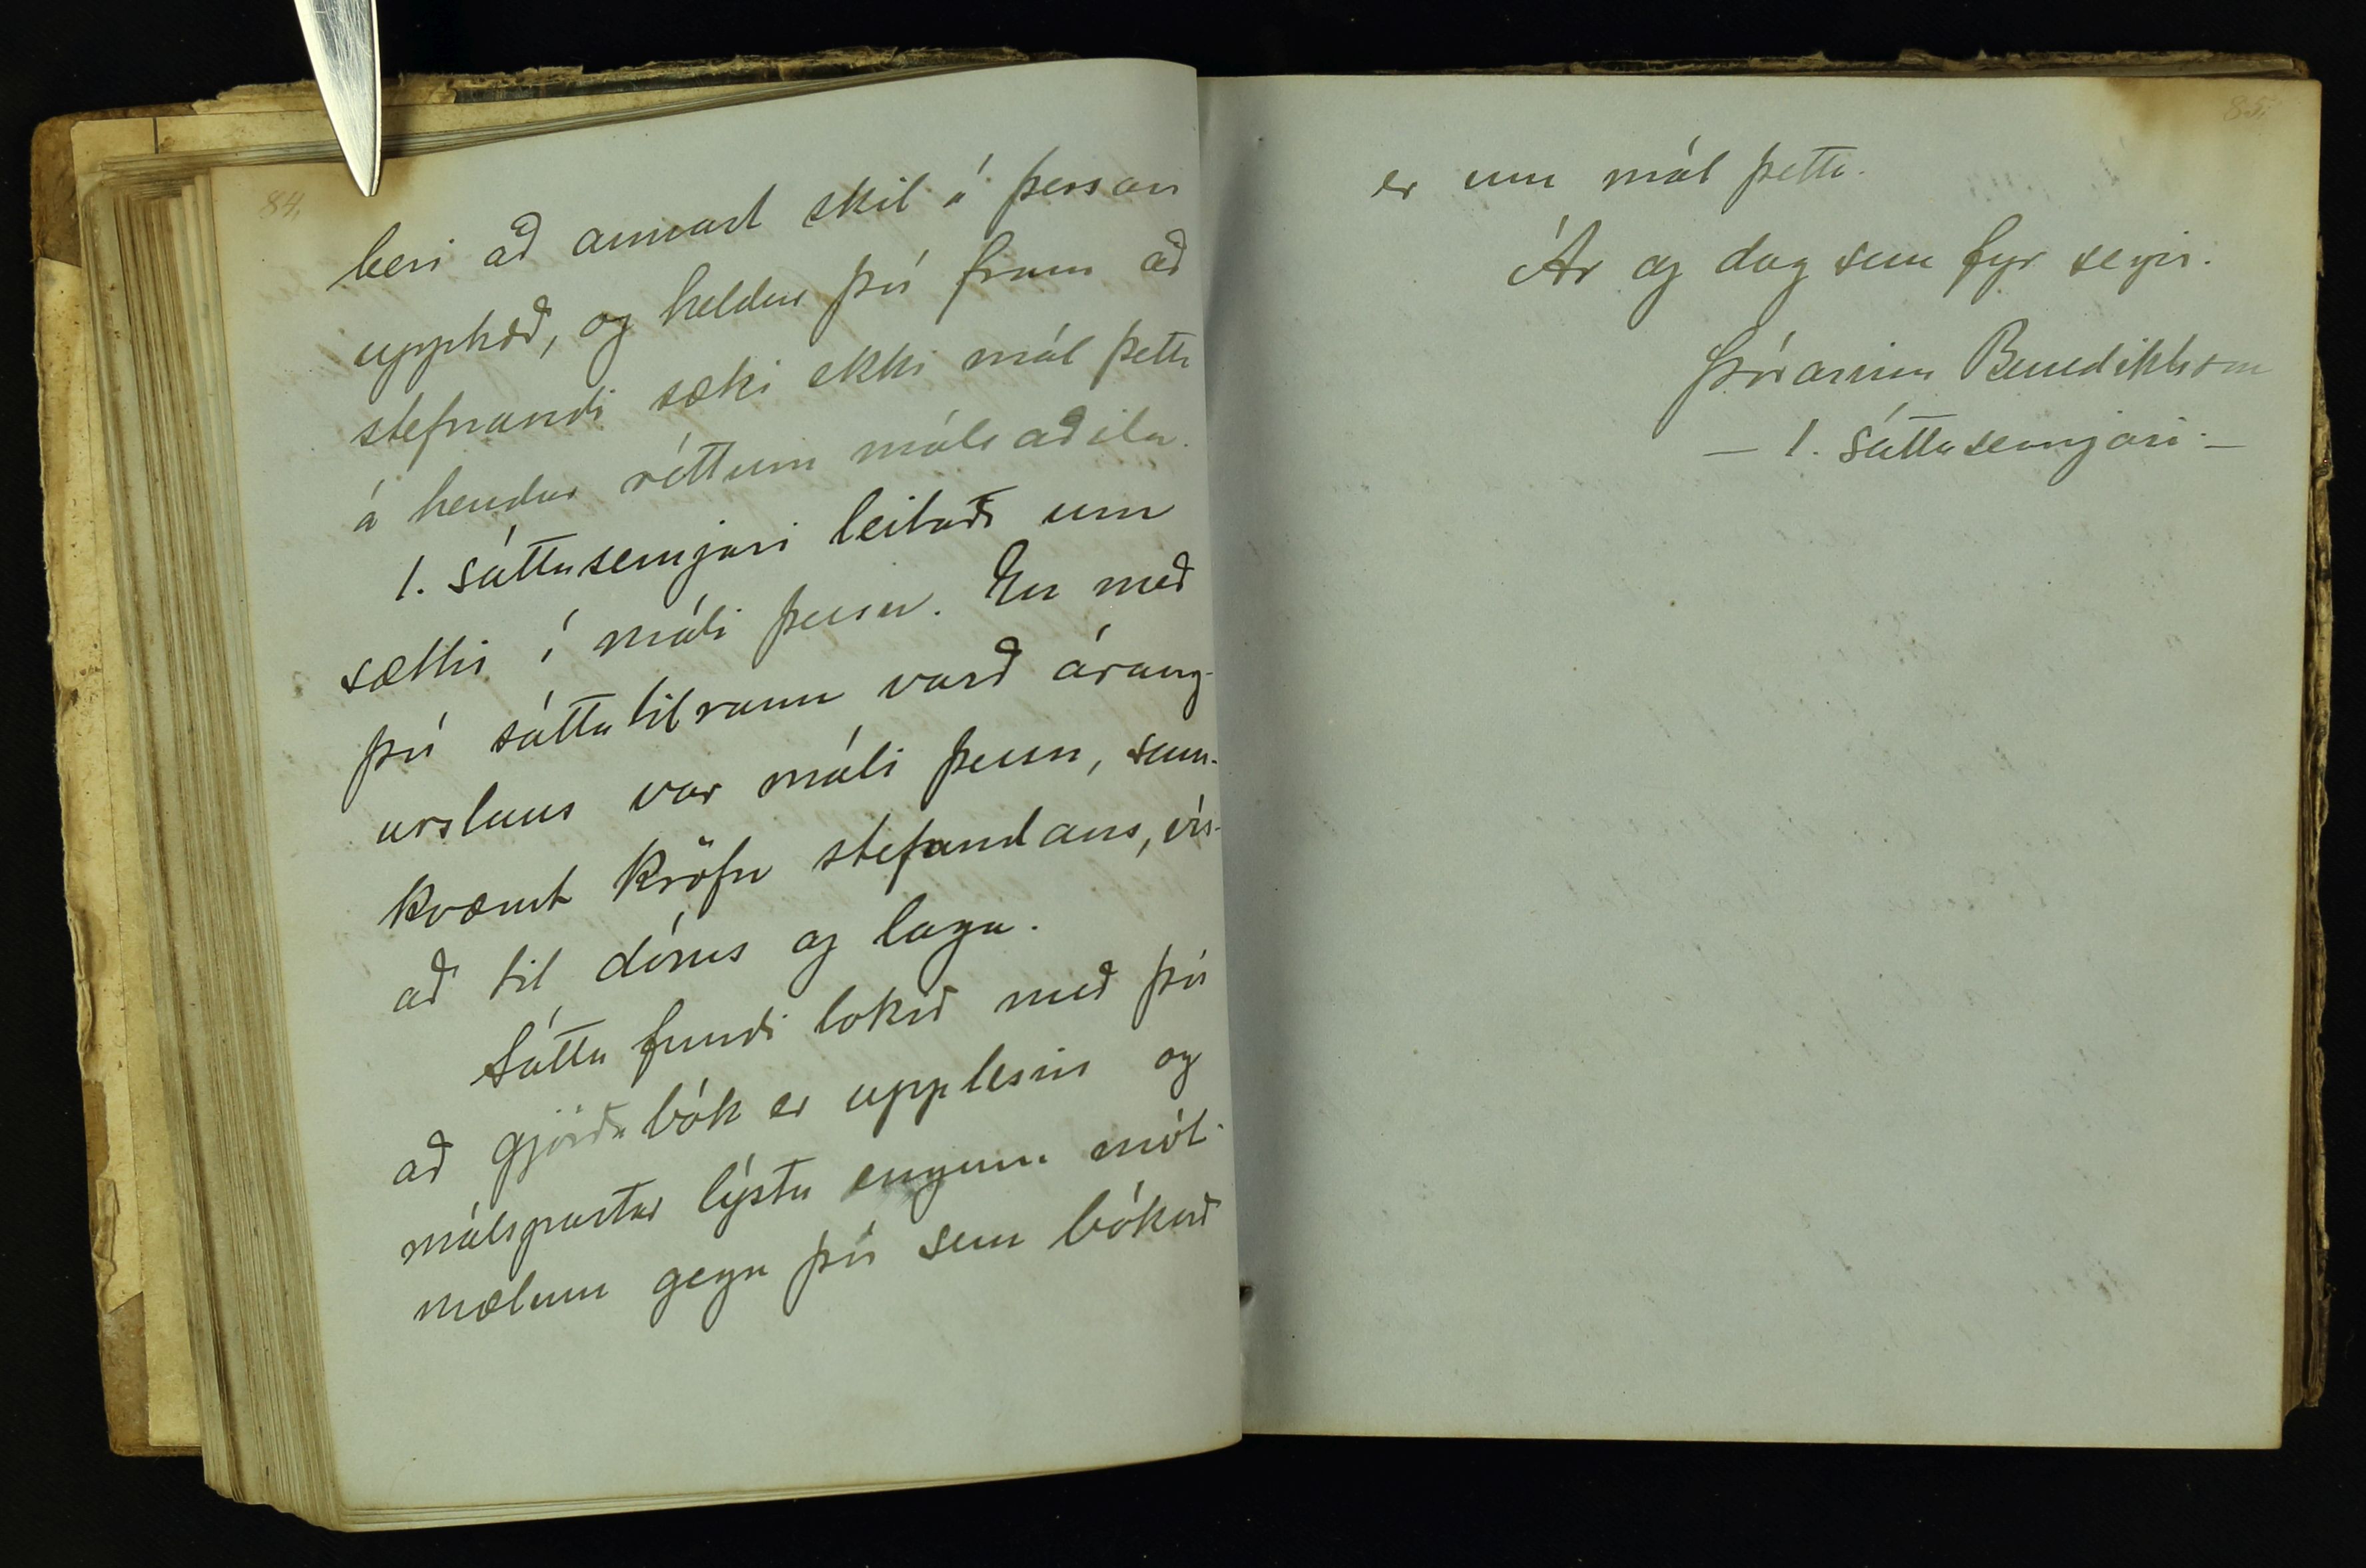 84.
beri að annast skil á þessari
upphæð, og heldur því fram að
stefnandi sæki ekki mál þetta
á hendur réttum málsaðila.
1. sáttasemjari leitaði um
sættir í máli þessu. En með
því sáttatilraun varð árang-
urslaus var máli þessu, sam-
kvæmt kröfu stefandans, vís-
að til dóms og laga.
Sáttafundi lokið með því
að gjörðabók er upplesin og
málspartar lýstu engum mót-
mælum gegn því sem bókað
85.
er um mál þetta.
Ár og dag sem fyr segir.
Þórarinn Benediktsson
- 1. sáttasemjari -